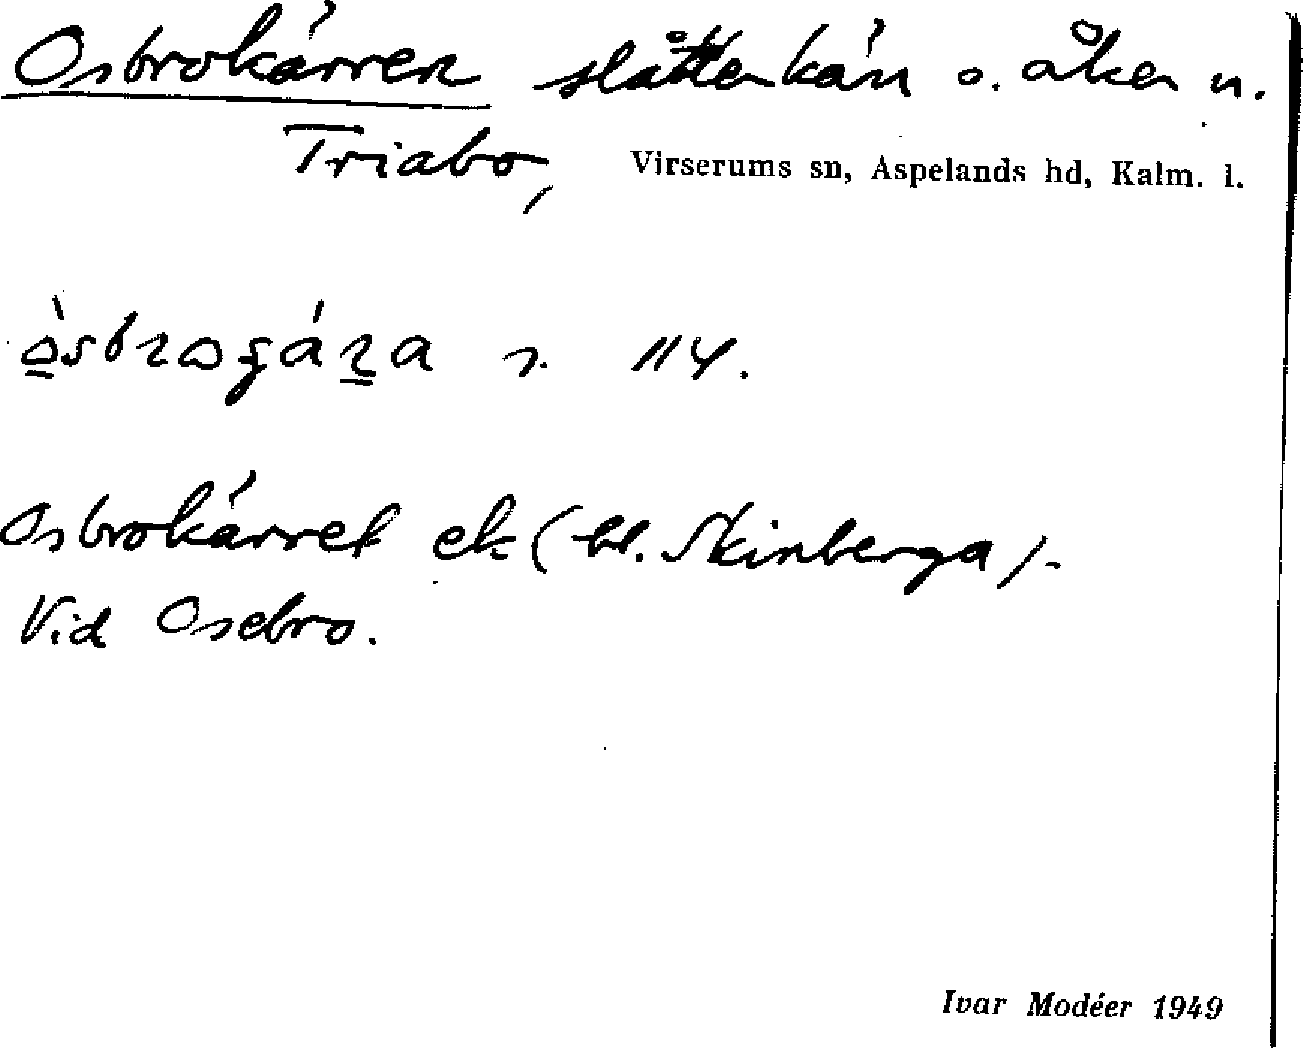 Osbrokärren slåtterkärr o. åker u.
Triabo, Virserums sn, Aspelands hd, Kalm. l.
114.
Osbrokärret ek (bl. Skinberga).
Vid Osebro.
Ivar Modéer 1949